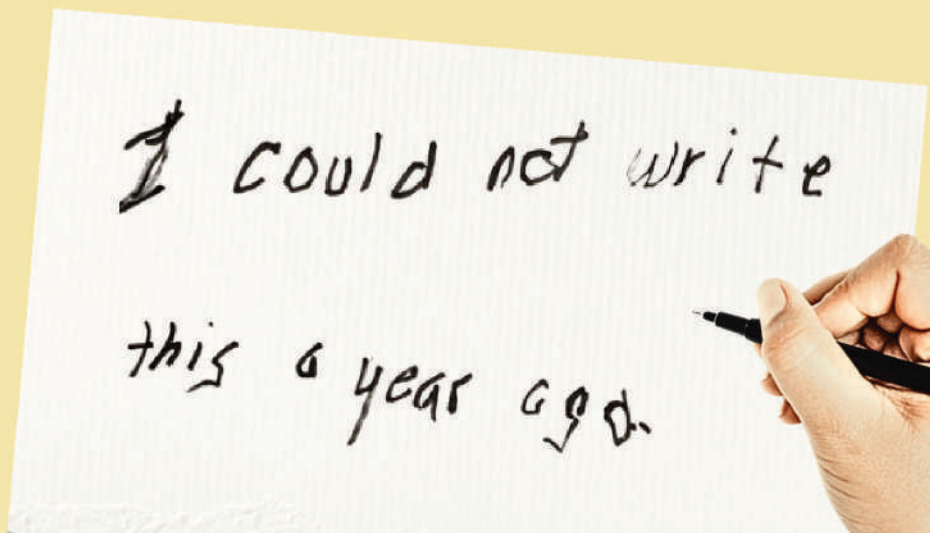 I could not write
this a year ago.